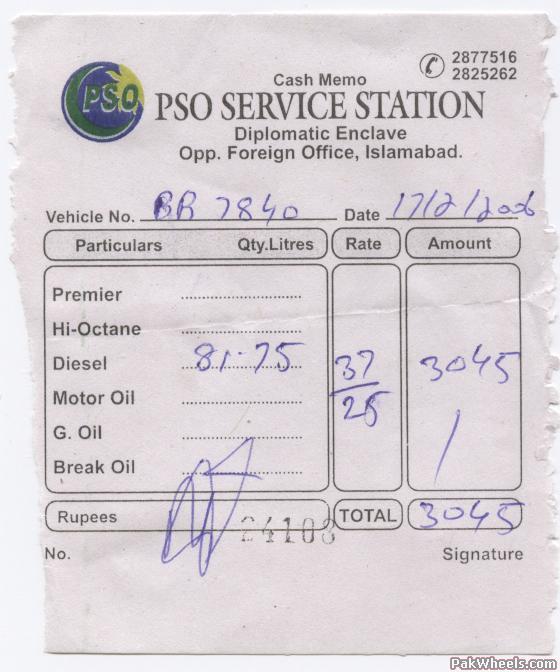 2877516
2825262
PSO
Cash Memo
PSO SERVICE STATION
Diplomatic Enclave
Opp. Foreign Office, Islamabad.
Vehicle No. BR 7840 Date 17/2/2006
Particulars Qty.Litres Rate Amount
Premier
Hi-Octane
Diesel 81.75 37/25 3045
Motor Oil
G. Oil
Break Oil
Rupees TOTAL 3045
No. 24103 Signature
PakWheels.com